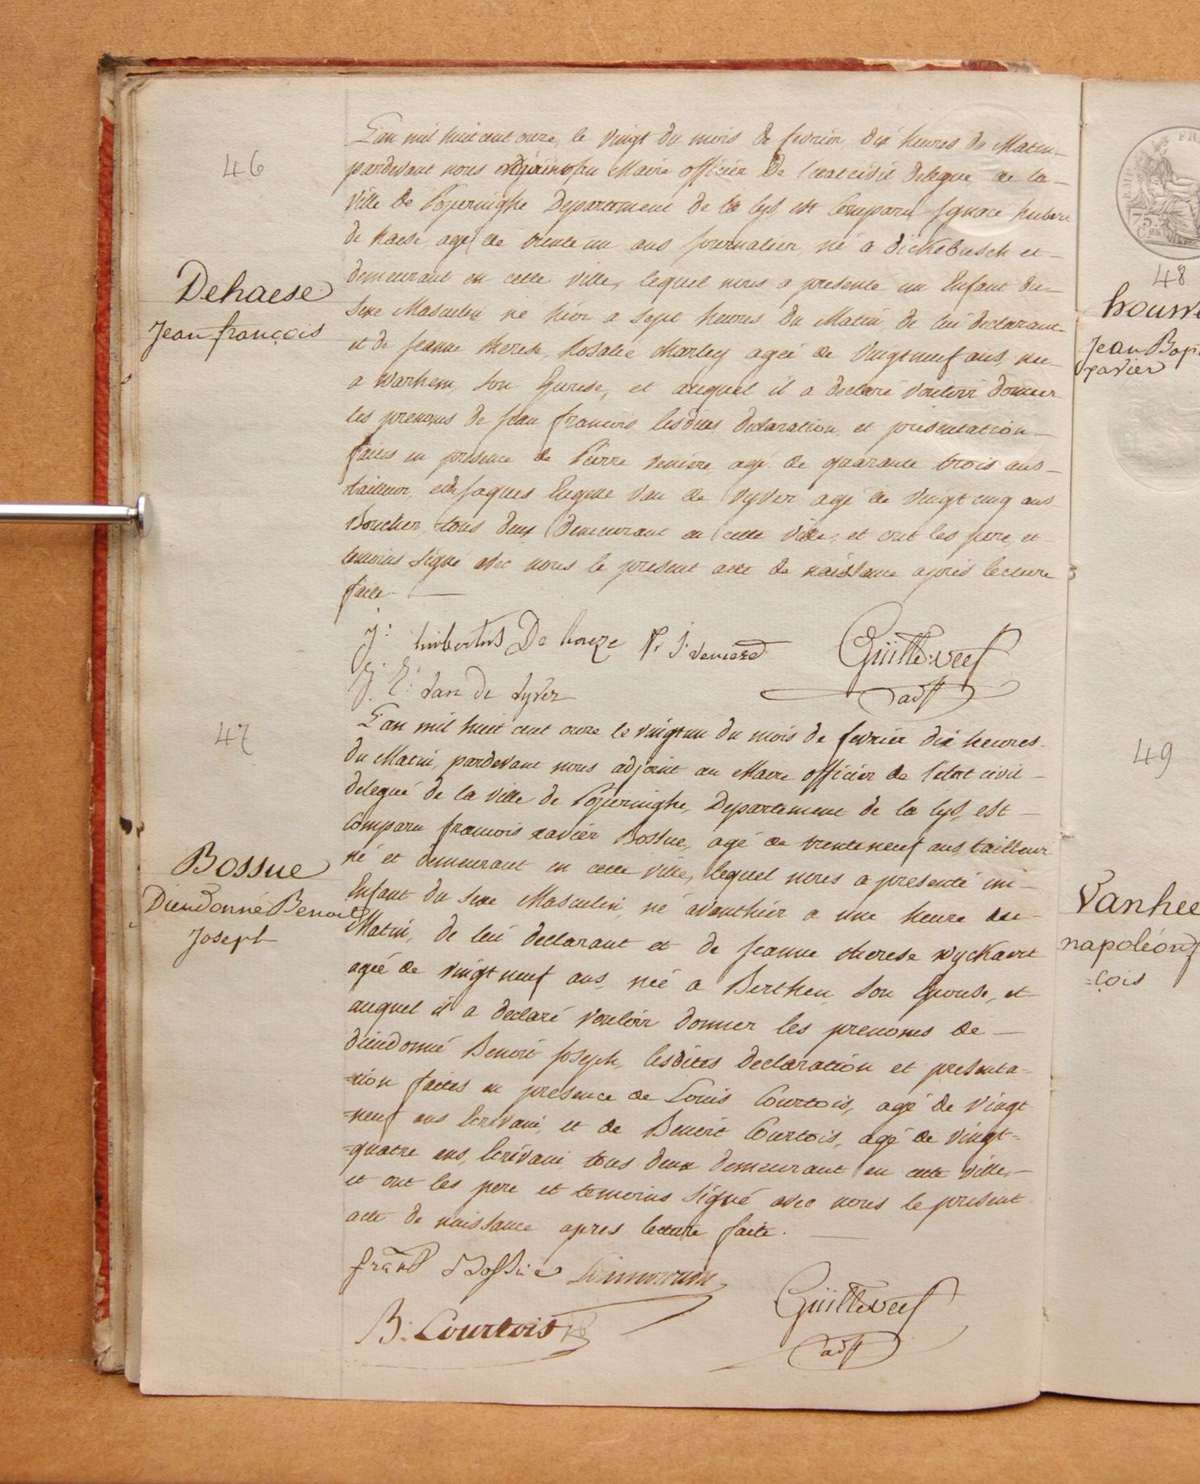 46
Dehaese
Jean françois
L'an mil huit cent onze, le vingt du mois de fevrier dix heures du Matin
pardevant nous adjoint au Maire officier de l'etat civil delegué de la
ville de Poperinghe Departement de la lys est Comparu Ignace hubert
de haese agé de trente un ans Journalier, né a dickebusch et
demeurant en cette ville, lequel nous a presenté un Enfant du
Sexe Masculin né hier a sept heures du Matin, de lui declarant
et de Jeanne therese Rosalie Marley agée de vingt neuf ans, née
a Warhem, son Epouse, et auquel il a declaré vouloir donner
les prenoms de Jean francois lesdites declaration et presentation
faites en presence de Pierre agé de quarante trois ans
tailleur, et de Jaques Eugene van de vyver agé de vingt cinq ans
Boucher, tous deux Demeurant en cette ville, et ont les pere et
temoins signé avec nous le present acte de naissance après lecture
faite.
J: hubertus De
Guillewerf
adjt
J: E: Van de Vyver
47
Bossue
Dieudonné Benoit
Joseph
L'an mil huit cent onze le vingt un du mois de fevrier dix heures
du Matin, pardevant nous adjoint au Maire officier de l'etat civil
delegué de la ville de Poperinghe, Departement de la lys, est
Comparu francois xavier Bossue, agé de trente neuf ans tailleur
né et demeurant en cette ville, lequel nous a presenté un
Enfant du Sexe Masculin, né avanthier a une heure du
Matin, de lui declarant et de Jeanne therese wyckaert
agée de vingt neuf ans, née a Berthen, son Epouse, et
auquel il a declaré vouloir donner les prenoms de
dieudonné Benoit Joseph, lesdites declaration et presenta-
=tion faites en presence de Louis Courtois, agé de vingt
=neuf ans Ecrivain, et de Benoit Courtois, agé de vingt=
=quatre ans, Ecrivain tous deux demeurant en cette ville,
et ont les pere et temoins signé avec nous le present
acte de naissance apres lecture faite.
frans Bossue
B: Courtois
Guillewerf
adjt
48
Jean Bap
xavier
49
Vanhee
napoléon f
=çois